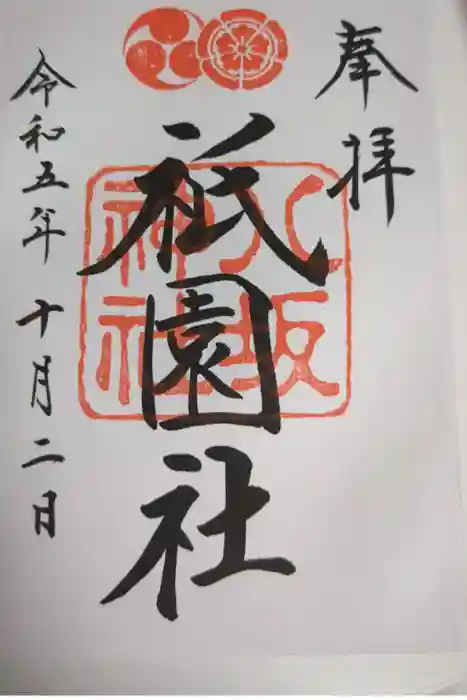 奉拝
祇園社
八坂
神社
令和五年十月二日